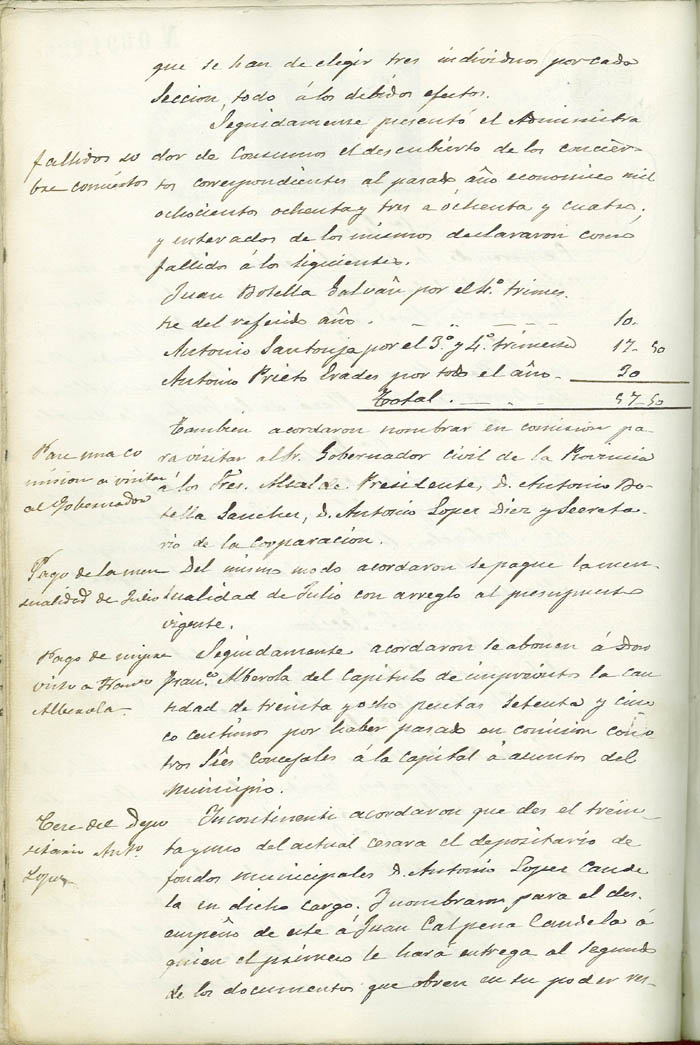 que se han de elegir tres individuos por cada
Seccion, todo á los debidos efectos.
Seguidamente presentó el Administra
fallidos so
bre conciertos
dor de Consumos el descubierto de los concier-
tos correspondientes al pasado año economico mil
ochocientos ochenta y tres a ochenta y cuatro,
y enterados de los mismos declararon como
fallido á los siguientes.
Juan Botella Galvañ por el 4.º trimes-
tre del referido año. 10.
Antonio Santonja por el 3.º y 4.º trimestre 17-50
Antonio Prieto Erades por todo el año- 30
Total. 57-50
Para una co
mision a visitar
al Gobernador
Tambien acordaron nombrar en comision pa-
ra visitar al Sr. Gobernador Civil de la Provincia
á los Sres. Alcalde Presidente, D. Antonio Bo-
tella Sanchez, D. Antonio Lopez Diez y Secreta-
rio de la Corparación.
Pago de la men
sualidad de Julio
Del mismo modo acordaron se pague la men-
sualidad de Julio con arreglo al presupuesto
vigente.
Pago de impre
visto a Franco
Alberola-
Seguidamente acordaron se abonen á Don
Franc.º Alberola del Capitulo de imprevistos la can-
tidad de treinta y ocho pesetas setenta y cin-
co centimos por haber pasado en comision con o-
tros Sres concejales á la capital á asuntos del
Municipio.
Cese del Depo
sitario Ant.º
Lopez
Incontinenti acordaron que des el trein-
ta y uno del actual cesara el depositario de
fondos municipales D. Antonio Lopez Cande
la en dicho cargo. Y nombraron para el des-
empeño de este á Juan Calpena Candela á
quien el primero le hará entrega al segundo
de los documentos que obren en su poder res-